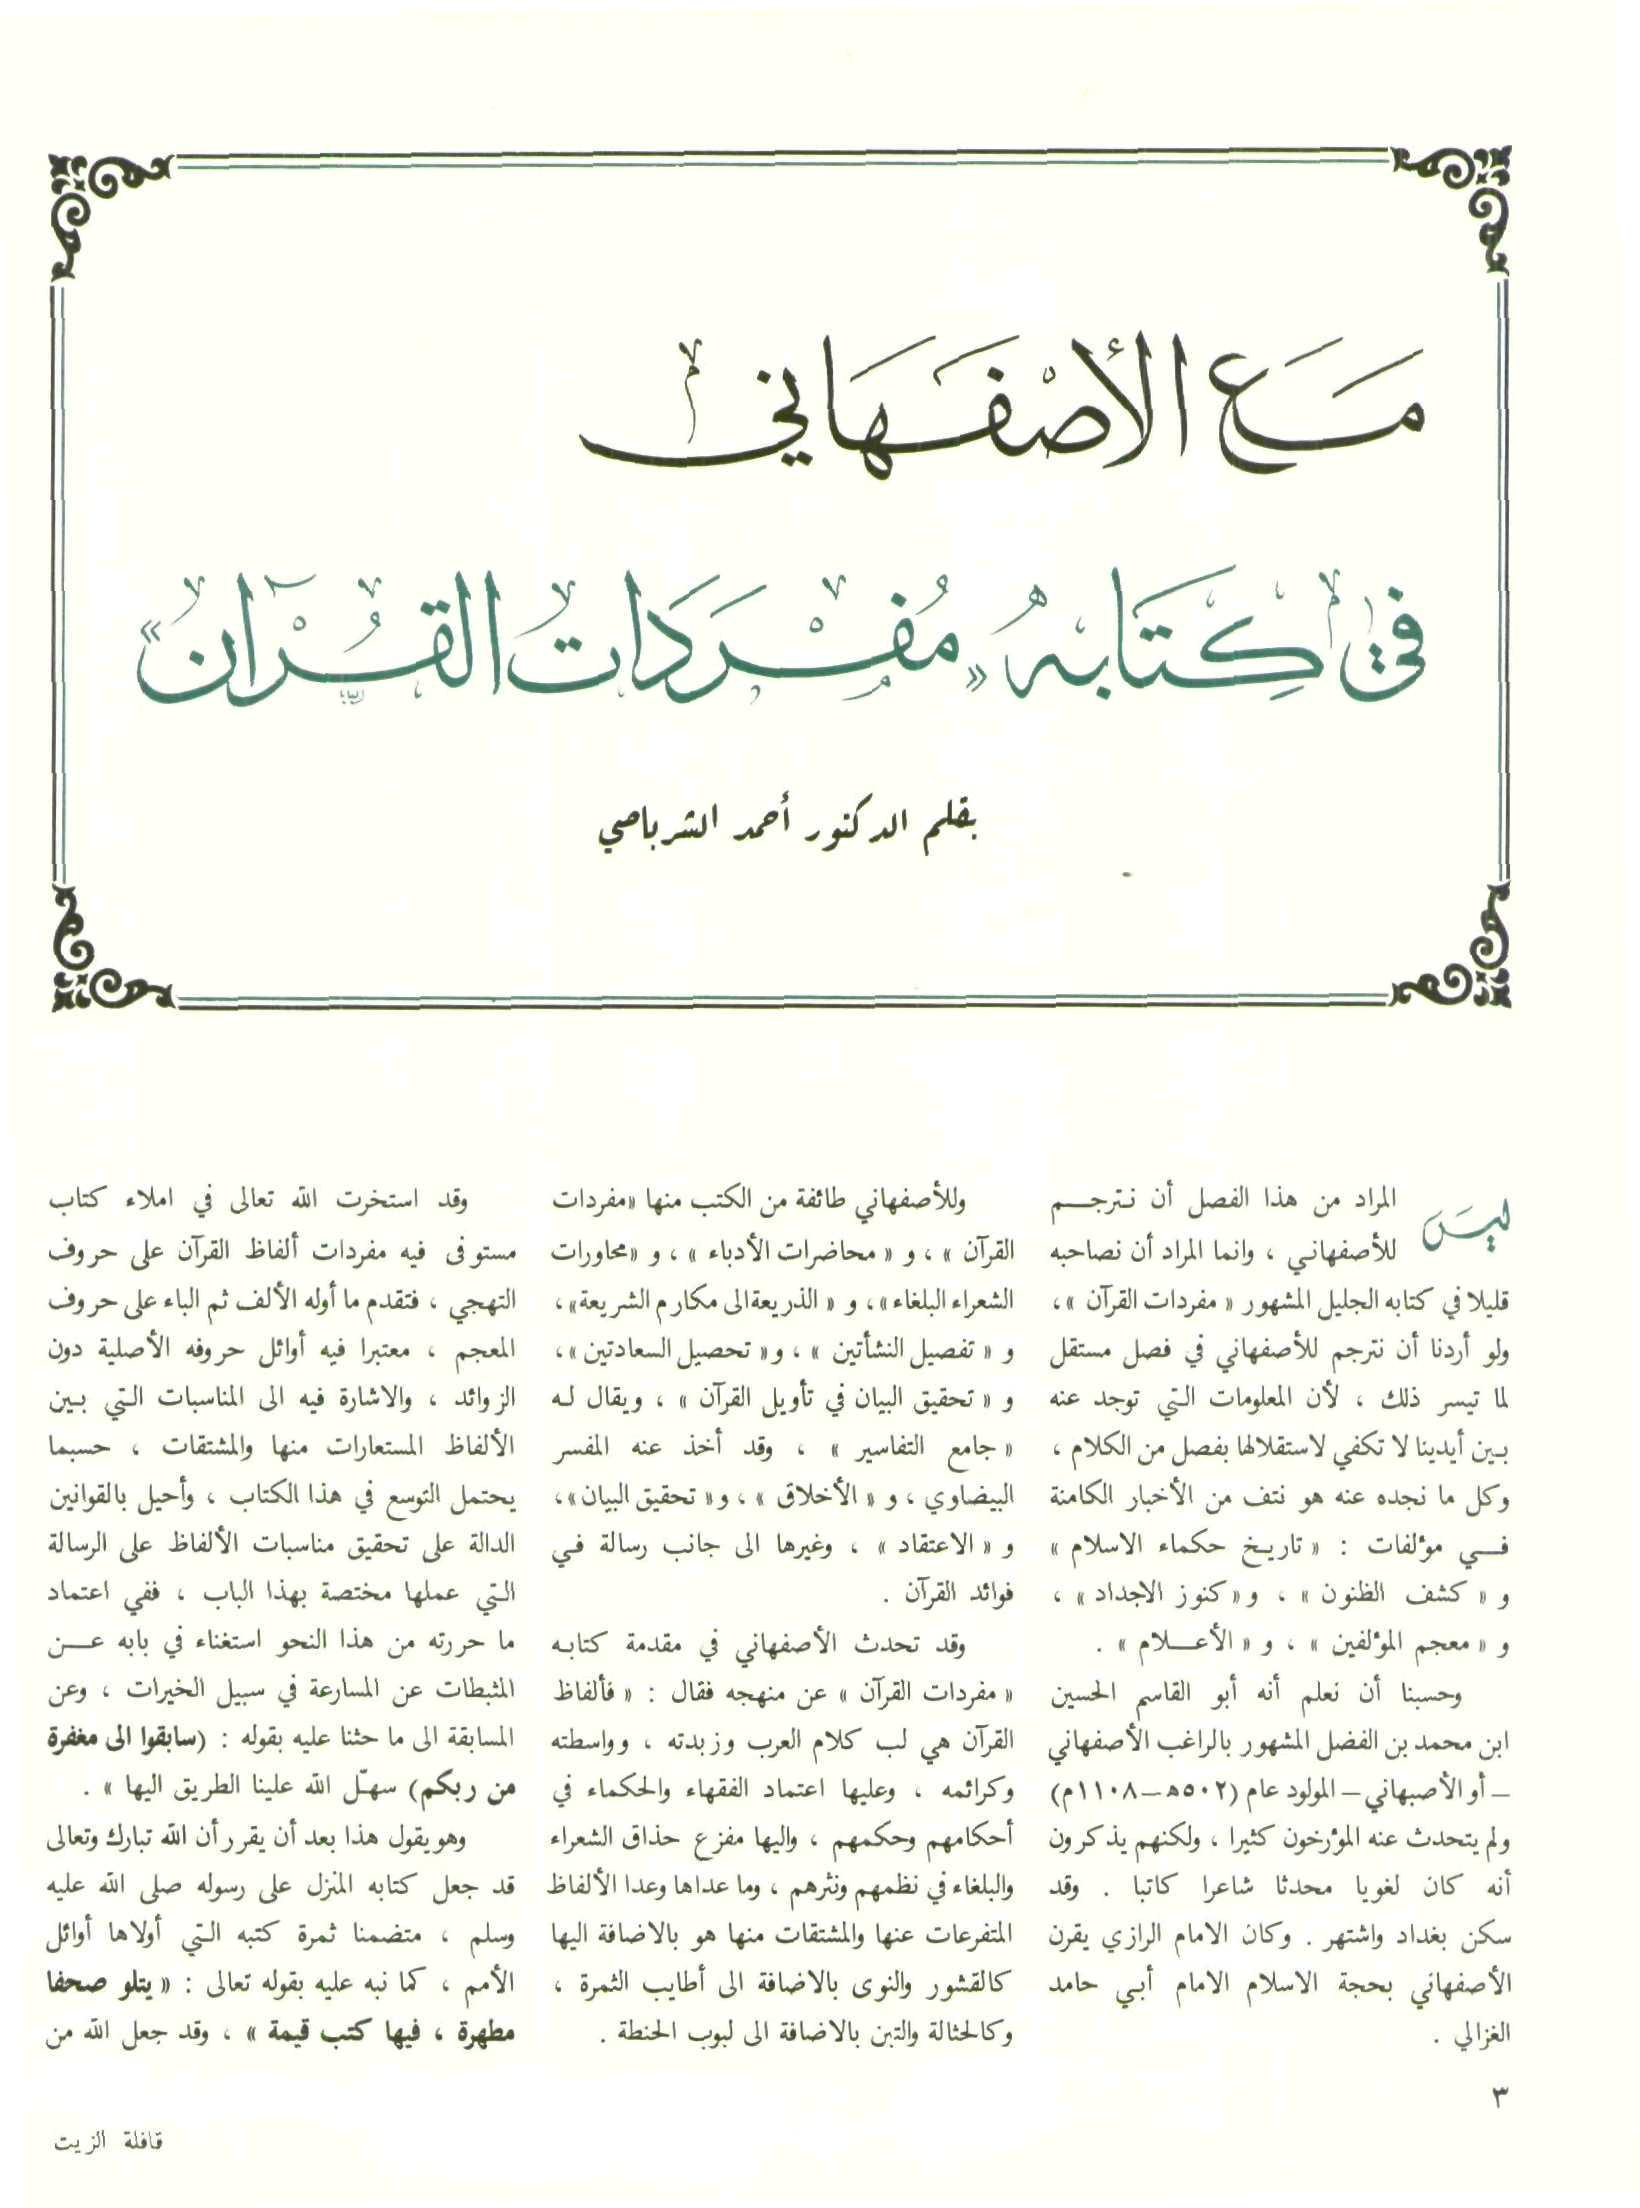 مع الأصفهاني
في كتابه «مفردات القرآن»
بقلم الدكتور أحمد الشرباصي
ليس المراد من هذا الفصل أن نترجم
للأصفهاني ، وانما المراد أن نصاحبه
قليلا في كتابه الجليل المشهور « مفردات القرآن »،
ولو أردنا أن نترجم للأصفهاني في فصل مستقل
لما تيسر ذلك ، لأن المعلومات التي توجد عنه
بين أيدينا لا تكفي لاستقلالها بفصل من الكلام ،
وكل ما نجده عنه هو نتف من الأخبار الكامنة
في مؤلفات : « تاريخ حكماء الاسلام »
و « كشف الظنون » ، و « كنوز الاجداد » ،
و « معجم المؤلفين » ، و « الأعلام » .
وحسبنا أن نعلم أنه أبو القاسم الحسين
ابن محمد بن الفضل المشهور بالراغب الأصفهاني
– أو الأصبهاني – المولود عام (٥٠٢هـ – ١١٠٨م)
ولم يتحدث عنه المؤرخون كثيرا ، ولكنهم يذكرون
أنه كان لغويا محدثا شاعرا كاتبا . وقد
سكن بغداد واشتهر . وكان الامام الرازي يقرن
الأصفهاني بحجة الاسلام الامام أبي حامد
الغزالي .
وللأصفهاني طائفة من الكتب منها «مفردات
القرآن » ، و « محاضرات الأدباء » ، و «محاورات
الشعراء البلغاء»، و « الذريعة الى مكارم الشريعة»،
و « تفصيل النشأتين » ، و « تحصيل السعادتين »،
و « تحقيق البيان في تأويل القرآن » ، ويقال له
« جامع التفاسير » ، وقد أخذ عنه المفسر
البيضاوي ، و « الأخلاق » ، و « تحقيق البيان»،
و « الاعتقاد » ، وغيرها الى جانب رسالة في
فوائد القرآن .
وقد تحدث الأصفهاني في مقدمة كتابه
« مفردات القرآن » عن منهجه فقال : « فألفاظ
القرآن هي لب كلام العرب وزبدته ، وواسطته
وكرائمه ، وعليها اعتماد الفقهاء والحكماء في
أحكامهم وحكمهم ، واليها مفزع حذاق الشعراء
والبلغاء في نظمهم ونثرهم ، وما عداها وعدا الألفاظ
المتفرعات عنها والمشتقات منها هو بالاضافة اليها
كالقشور والنوى بالاضافة الى أطايب الثمرة ،
وكالحثالة والتبن بالاضافة الى لبوب الحنطة .
وقد استخرت الله تعالى في املاء كتاب
مستوفى فيه مفردات ألفاظ القرآن على حروف
التهجي ، فتقدم ما أوله الألف ثم الباء على حروف
المعجم ، معتبرا فيه أوائل حروفه الأصلية دون
الزوائد ، والاشارة فيه الى المناسبات التي بين
الألفاظ المستعارات منها والمشتقات ، حسبما
يحتمل التوسع في هذا الكتاب ، وأحيل بالقوانين
الدالة على تحقيق مناسبات الألفاظ على الرسالة
التي عملها مختصة بهذا الباب ، ففي اعتماد
ما حررته من هذا النحو استغناء في بابه عن
المثبطات عن المسارعة في سبيل الخيرات ، وعن
المسابقة الى ما حثنا عليه بقوله : (سابقوا الى مغفرة
من ربكم) سهّل الله علينا الطريق اليها » .
وهو يقول هذا بعد أن يقرر أن الله تبارك وتعالى
قد جعل كتابه المنزل على رسوله صلى الله عليه
وسلم ، متضمنا ثمرة كتبه التي أولاها أوائل
الأمم ، كما نبه عليه بقوله تعالى : « يتلو صحفا
مطهرة ، فيها كتب قيمة » ، وقد جعل الله من
٣
قافلة الزيت